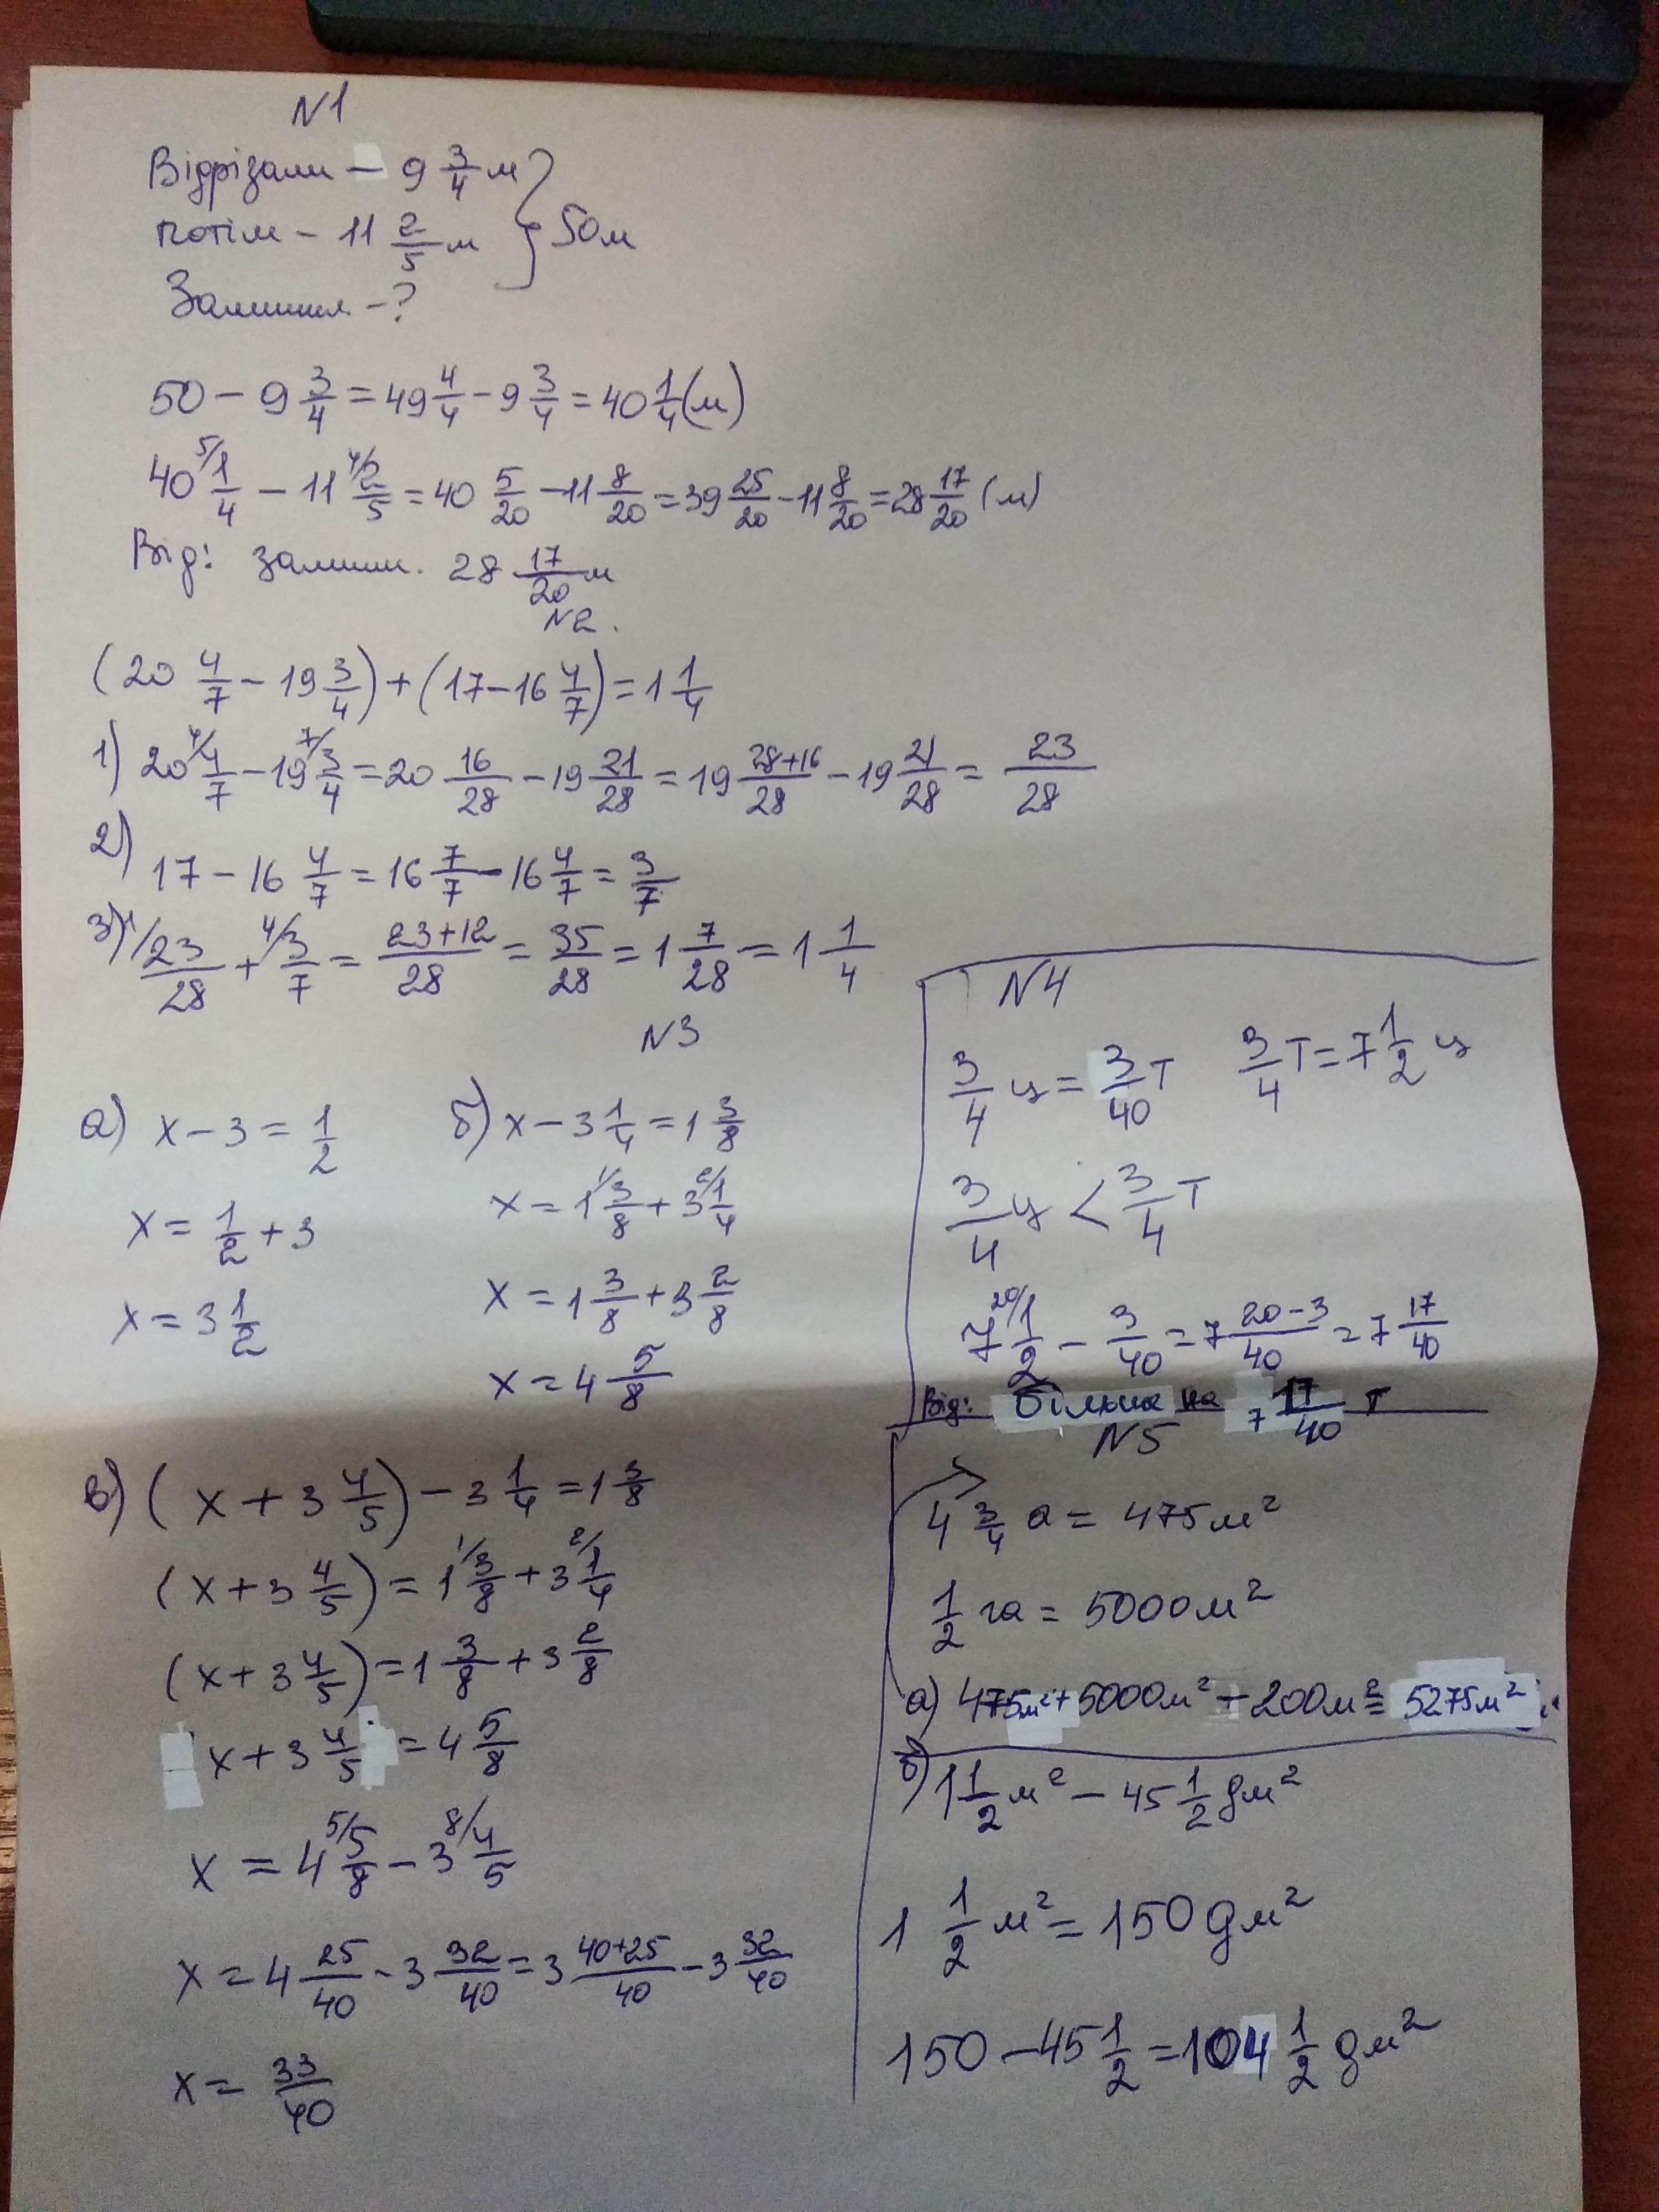 N1
Відрізали – 9 3/4 м
потім – 11 2/5 м } 50м
Залишил. – ?
50 – 9 3/4 = 49 4/4 – 9 3/4 = 40 1/4 (м)
40 5/ 1/4 – 11 4/ 2/5 = 40 5/20 – 11 8/20 = 39 25/20 – 11 8/20 = 28 17/20 (м)
Від: залиш. 28 17/20 м
N2.
(20 4/7 – 19 3/4) + (17 – 16 4/7) = 1 1/4
1) 20 4/ 4/7 – 19 7/ 3/4 = 20 16/28 – 19 21/28 = 19 28+16/28 – 19 21/28 = 23/28
2) 17 – 16 4/7 = 16 7/7 – 16 4/7 = 3/7
3) 1/ 23/28 + 4/ 3/7 = 23+12/28 = 35/28 = 1 7/28 = 1 1/4
N3
а) x – 3 = 1/2
x = 1/2 + 3
x = 3 1/2
б) x – 3 1/4 = 1 3/8
x = 1 1/ 3/8 + 3 2/ 1/4
x = 1 3/8 + 3 2/8
x = 4 5/8
в) (x + 3 4/5) – 3 1/4 = 1 3/8
(x + 3 4/5) = 1 1/ 3/8 + 3 2/ 1/4
(x + 3 4/5) = 1 3/8 + 3 2/8
x + 3 4/5 = 4 5/8
x = 4 5/ 5/8 – 3 8/ 4/5
x = 4 25/40 – 3 32/40 = 3 40+25/40 – 3 32/40
x = 33/40
N4
3/4 ц = 3/40 т 3/4 т = 7 1/2 ц
3/4 ц < 3/4 т
7 20/ 1/2 – 3/40 = 7 20–3/40 = 7 17/40
Від: більша на 7 17/40 т
N5
4 3/4 а = 475 м²
1/2 га = 5000 м²
а) 475м² + 5000м² – 200м² = 5275м²
б) 1 1/2 м² – 45 1/2 дм²
1 1/2 м² = 150 дм²
150 – 45 1/2 = 104 1/2 дм²